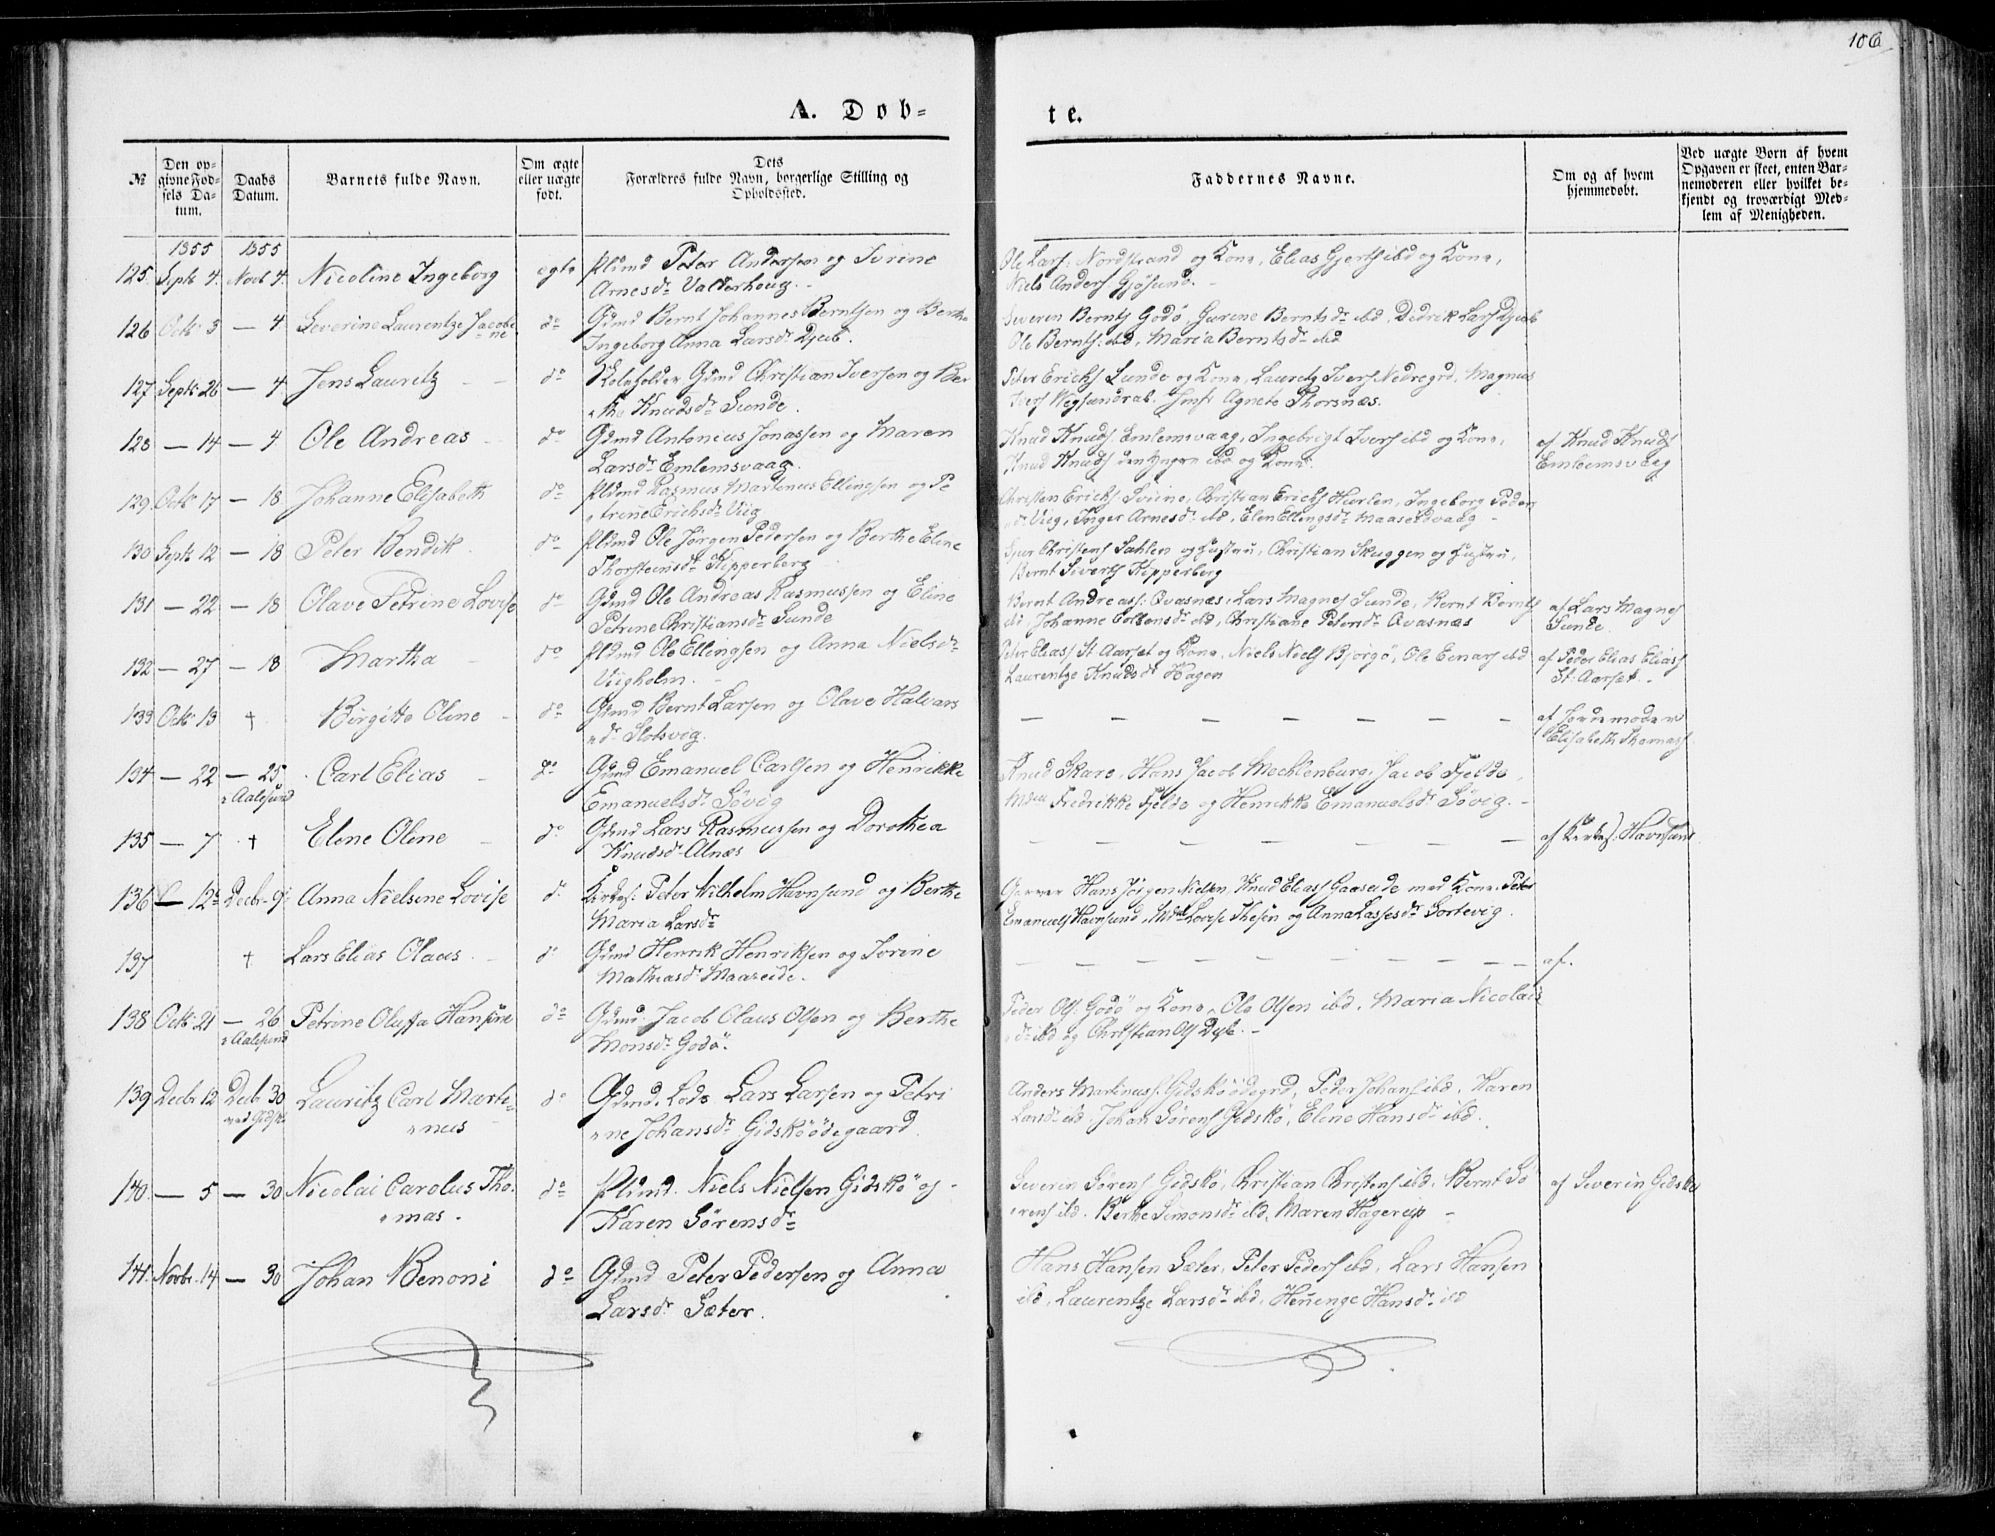 106
A. Døb-
te.
№
Den op-
givne Fød-
sels Da-
tum.
Daabs
Datum.
Barnets fulde Navn.
Om ægte
eller uægte
født.
Dets
Forældres fulde Navn, borgerlige Stilling og
Opholdssted.
Faddernes Navne.
Om og af hvem
hjemmedøbt.
Ved uægte Børn af hvem
Opgaven er skeet, enten Bar-
nemoderen eller hvilket be-
kjendt og troværdigt Med-
lem af Menigheden.
1855 1855
125. Septb 4. Novb 4. Nicoline Ingeborg ægte Plimd Peter Andersen og Sorine
Arnesdr Valderhoug.
Ole Lars: Nordstrand og Kone, Elias Gjerts ibd og Kone,
Niels Anders Gjøsund.
126 Octb 3 — 4 Severine Laurentze Jacobi-
ne do Gdmd Bernt Johannes Berntsen og Berthe
Ingeborg Anna Larsdr Djeb.
Severin Bernts Godø, Gurine Berntsdr ibd, Didrik Lars Djeb
Ole Bernts: ibd, Maria Berntsdr ibd
127 Septb 26 — 4. Jens Lauritz do Skoleholder Gdmd Christian Iversen og Ber
"the Knudsdr Sunde.
Peter Erichs Sunde og Kone, Lauritz Ivers Nedregrd, Magnus
Ivers Vegsundral. Jmfr Agnete Thorsnæs.
128 — 14 — 4 Ole Andreas do Gdmd Antonius Jonassen og Maren
Larsdr Emlemsvaag.
Knud Knuds Emlemsvaag, Ingebrigt Ivers ibd og Kone,
Knud Knuds den yngre ibd og Kone.
af Knud Knuds
Emblemsvaag
129 Octb 17 — 18 Johanne Elisabeth do Plimd Rasmus Martinus Ellingsen og Pe
"trine Erichsdr Viig
Christen Erichs Sviine, Christian Erichs Hurlen, Ingeborg Peder
"dr Viig, Inger Arnesdr ibd, Elen Ellingsdr Maaseidvaag
130 Septb 12 — 18 Peter Bendik. do Plimd Ole Jørgen Pedersen og Berthe Eline
Thorsteinsdr Kipperberg
Sjur Christens Sahlen og Hustru, Christian Skuggen og Hustru,
Bernt Siverts Kipperberg
131 — 22 — 18 Olave Petrine Lovise do Gdmd Ole Andreas Rasmussen og Eline
Petrine Christiansdr Sunde
Bernt Andreass: Qvasnæs, Lars Magnes Sunde, Bernt Bernts
ibd, Johanne Colbensdr ibd, Christiane Petersdr Qvasnæs
af Lars Magnes
Sunde
132 — 27 — 18 Martha do Plimd Ole Ellingsen og Anna Nielsdr
Viigholm.
Peter Eliass St. Aarset og Kone, Niels Niels Bjørgø, Ole Einars ibd
Laurentze Knudsdr Hagen
af Peder Elias Eliass
St. Aarset.
133 Octb 13 † Birgitte Oline do Gdmd Bernt Larsen og Olave Halvars
"dr Slotsvig.
— — — — — — — —
af Jordemoder
Elisabeth Thomass
134 — 22 — 25 Carl Elias do Gdmd Emanuel Carlsen og Henrikke
i Aalesund
Emanuelsdr Søvig
Knud Skare, Hans Jacob Mechlenburg, Jacob Fjelde,
Mdm Fredrikke Fjelde og Henrikke Emanuelsdr Søvig.
135 — 7 † Elene Oline do Gdmd Lars Rasmussen og Dorothea
Knudsdr Alnæs
— — — — — — — —
af Kirkes: Havnsund
136 — 12 Decbr 9 Anna Nielsine Lovise do Kirkes: Peter Vilhelm Havnsund og Berthe
Maria Larsdr
Garver Hans Jørgen Nielsen, Knud Eliass Gaaseide med Kone, Peter
Emanuels Havnsund, Mdm Lovise Thesen og Anna Lassesdr Sortevig.
137 † Lars Elias Olaus do Gdmd Henrik Henriksen og Sorine
Mathiasdr Maaseide.
— — — — — — — — af.
138 Octb 21 — 26 Petrine Oluffa Hansine do Gdmd. Jacob Olaus Olsen og Berthe
i Aalesund
Monsdr Godø.
Peder Ols: Godø og Kone, Ole Olsen ibd, Maria Nicolais
"dr ibd og Christian Ols Djeb.
139 Decbr 12 Decb 30 Lauritz Carl Marti-
ved Gidske
"nus do Gdmd. Lods Lars Larsen og Petri
"ne Johansdr Gidskøödegaard.
Anders Martinuss: Gidskøödegrd, Peder Johans ibd, Karen
Larsdr ibd. Johan Sørens Gidskø, Eline Hansdr ibd.
140 — 5 — 30 Nicolai Carolus Tho-
"mas. do Plimd. Niels Nielsen Gidskø og
Karen Sørensdr
Severin Sørens Gidskø, Christian Christens ibd, Bernt Sø
"rens ibd. Berthe Simonsdr ibd, Maren Hagerup
af Severin Gidskø
141. Novbr 14 — 30 Johan Benoni do Gdmd Peter Pedersen og Anna
Larsdr Sæter.
Hans Hansen Sæter, Peter Peders ibd, Lars Hansen
ibd, Laurentze Larsdr ibd, Henninge Hansdr ibd